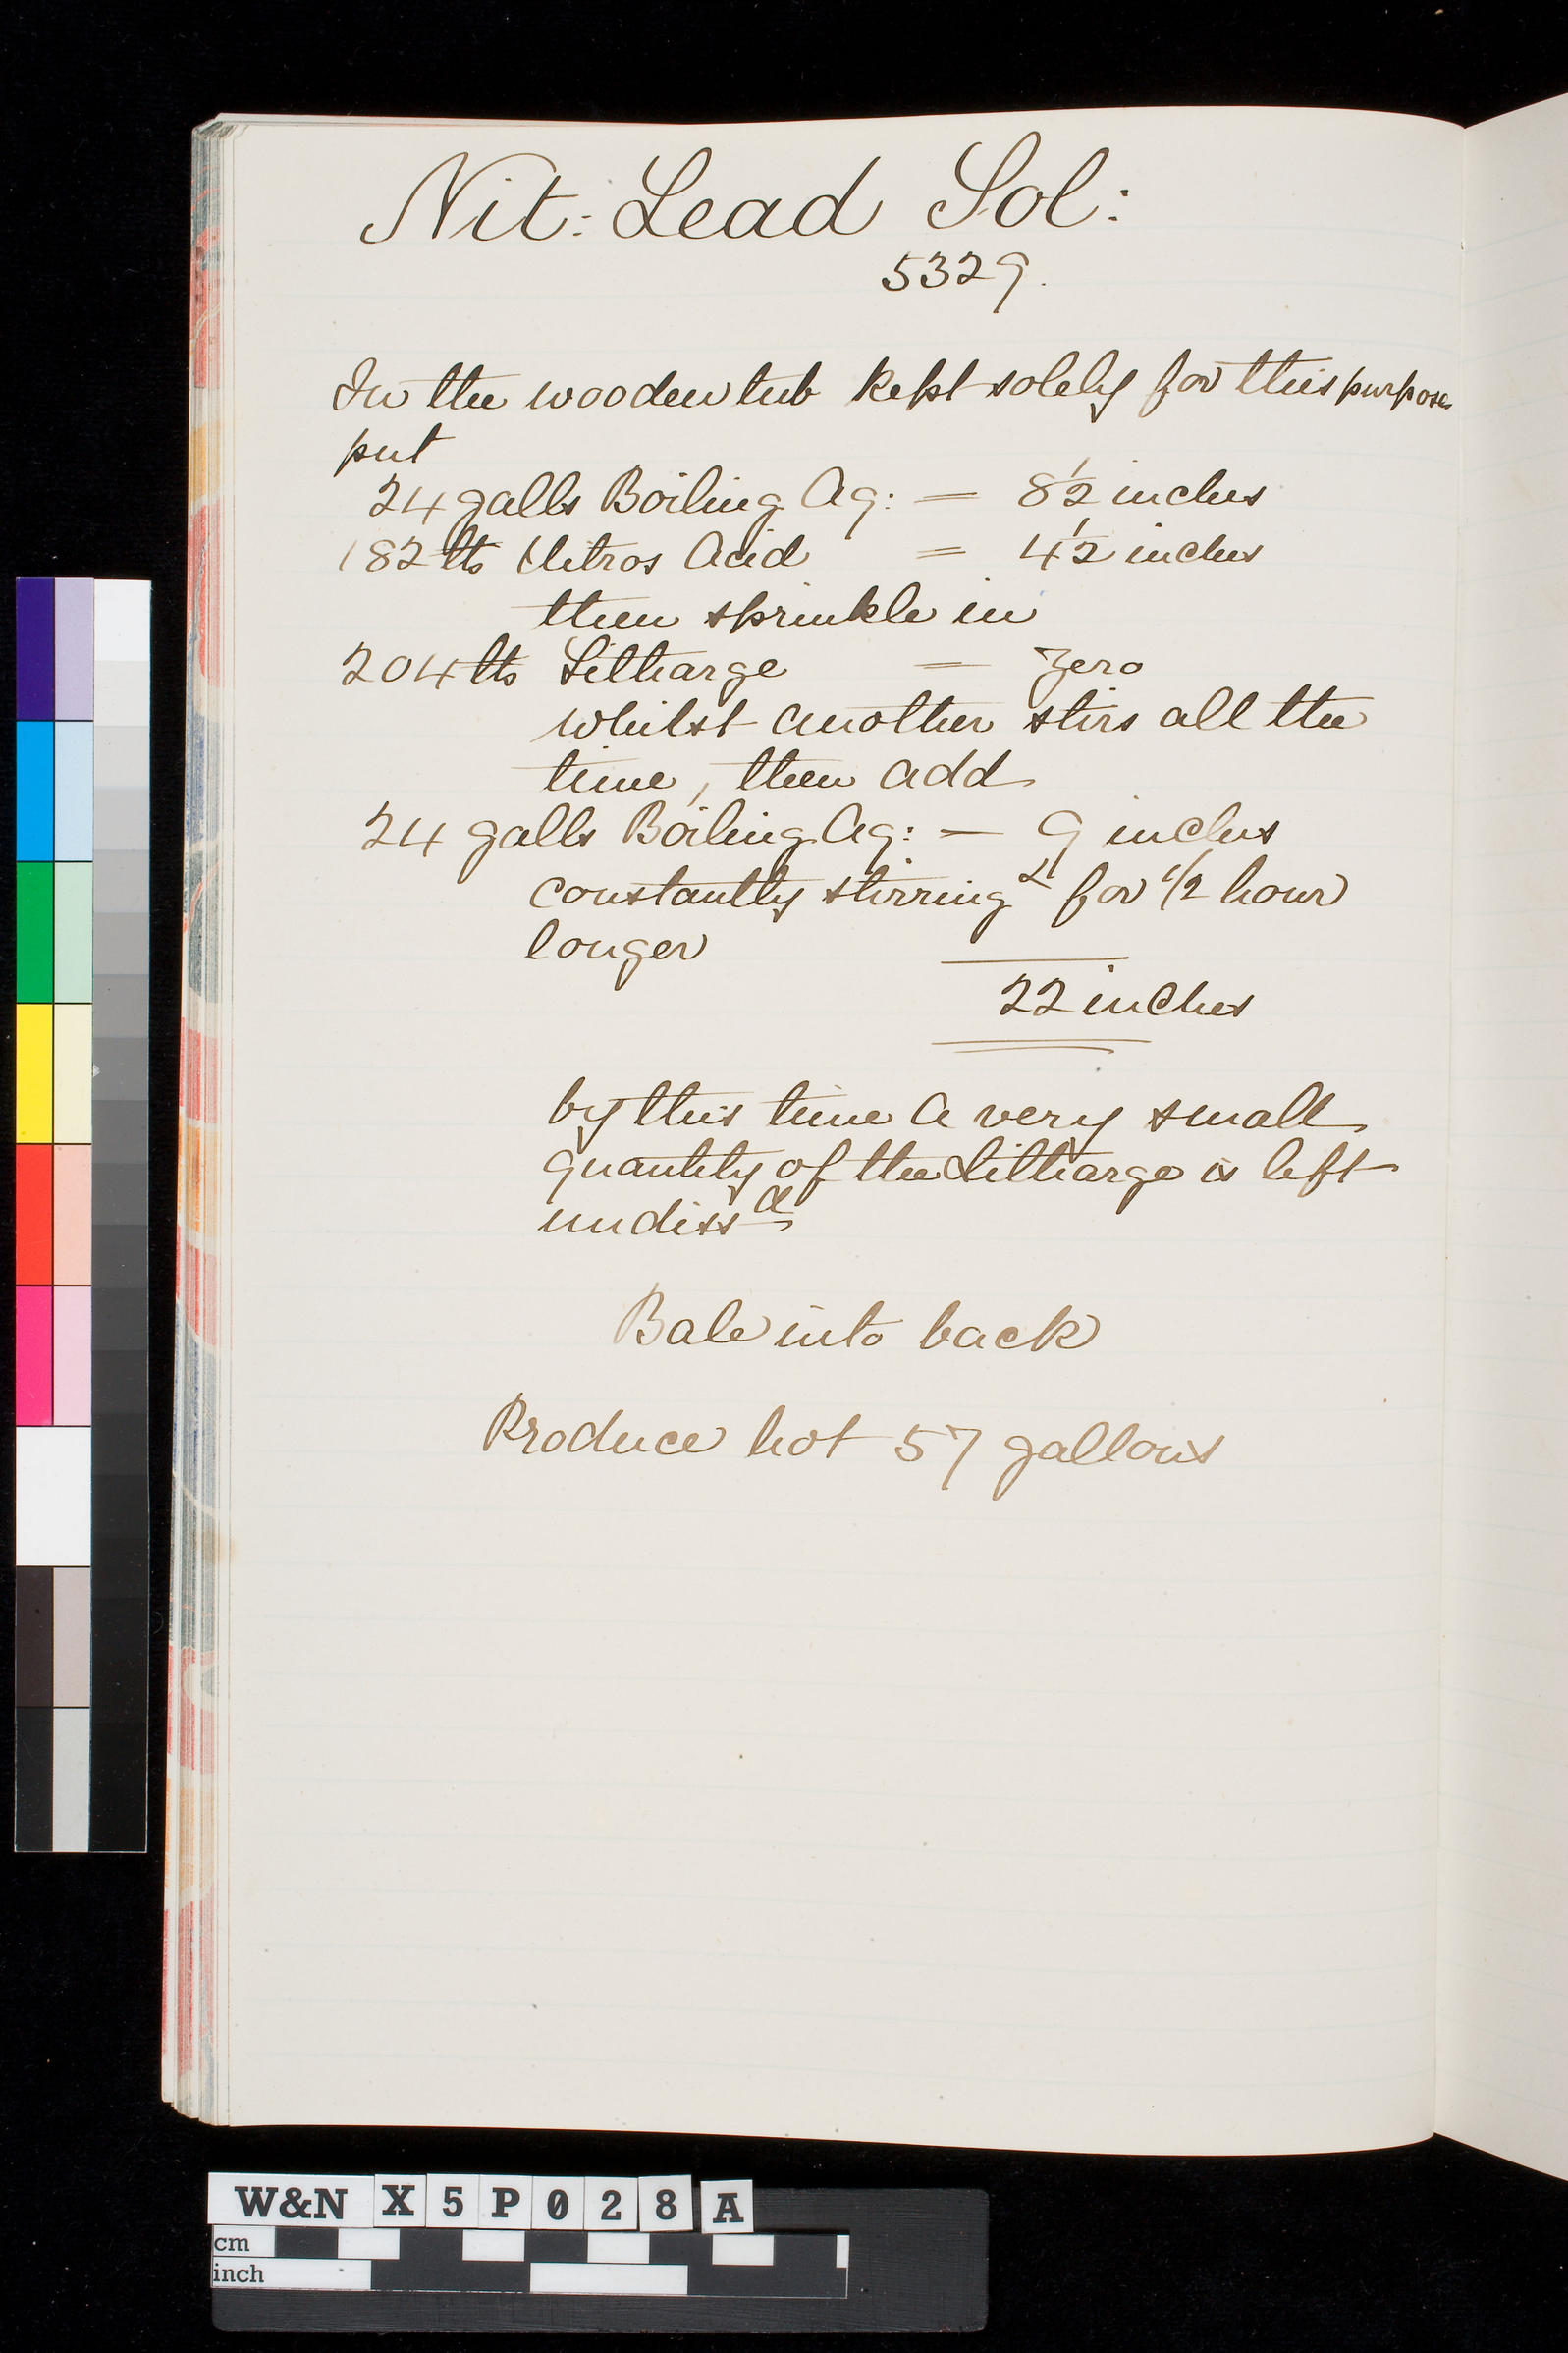 Nit: Lead Sol:
5329.
In the wooden tub kept solely for this purpose
put
24 galls Boiling Aq: — 8 1/2 inches
182 lbs Nitros Acid = 4 1/2 inches
then sprinkle in
204 lbs Litharge — Zero
whilst another stirs all the
time, then add
24 galls Boiling Aq: — 9 inches
constantly stirring & for 1/2 hour
longer
22 inches
by this time a very small
quantity of the Litharge is left
undissd
Bale into back
Produce hot 57 gallons
W&N X5P028A
cm
inch